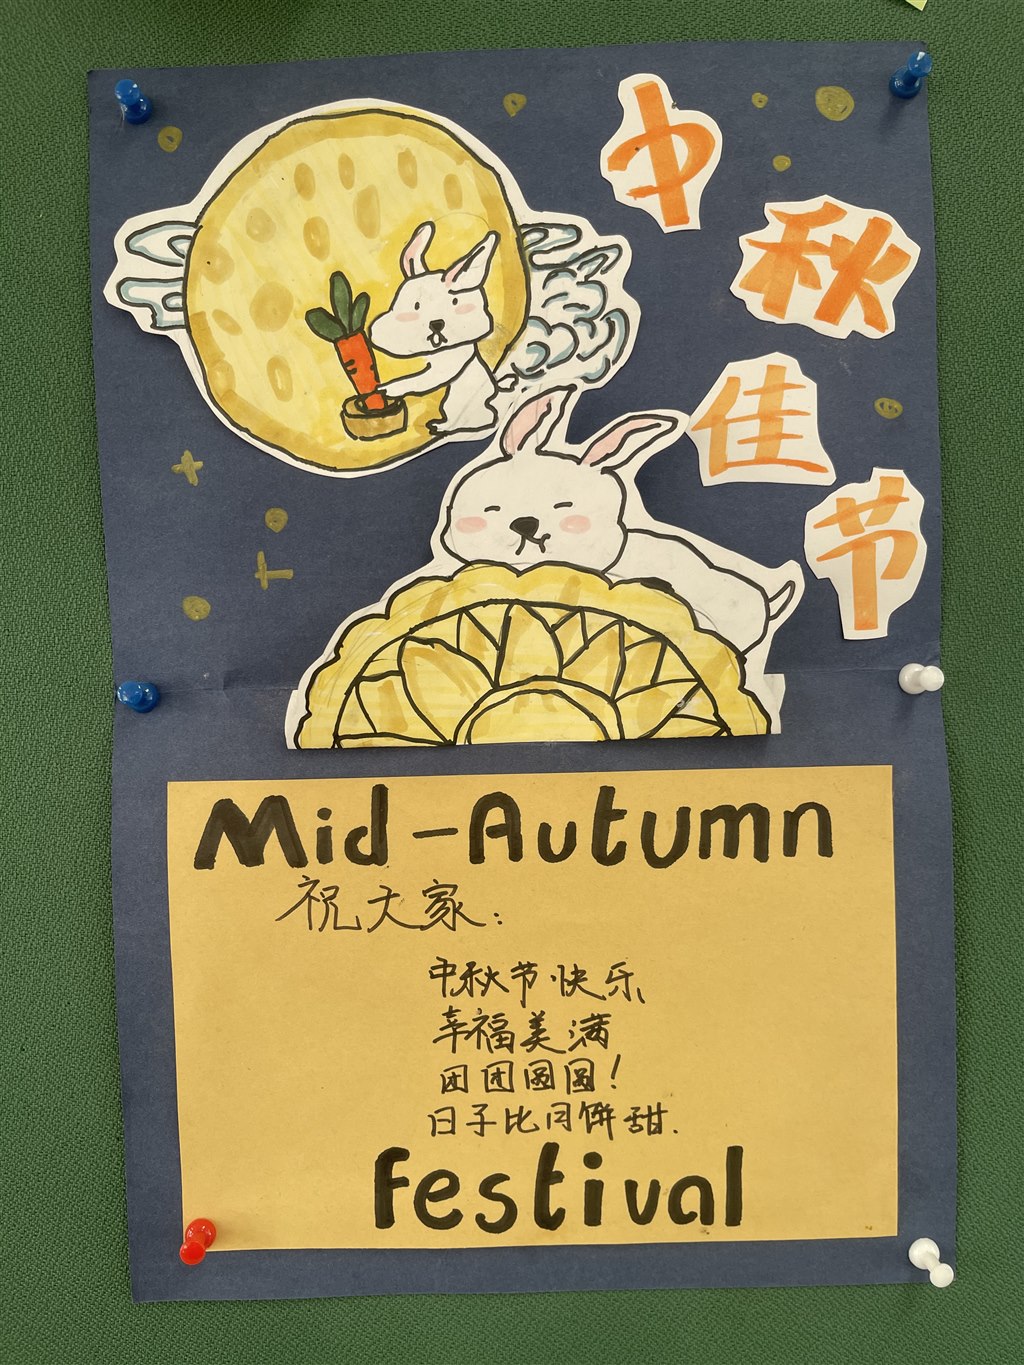 中秋佳节
Mid-Autumn
祝大家:
中秋节快乐
幸福美满
团团圆圆!
日子比月饼甜.
Festival